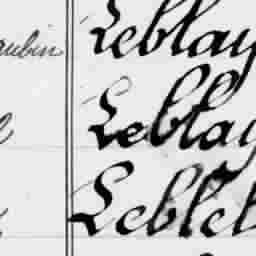 aubin Leblay
Leblay
Leblet